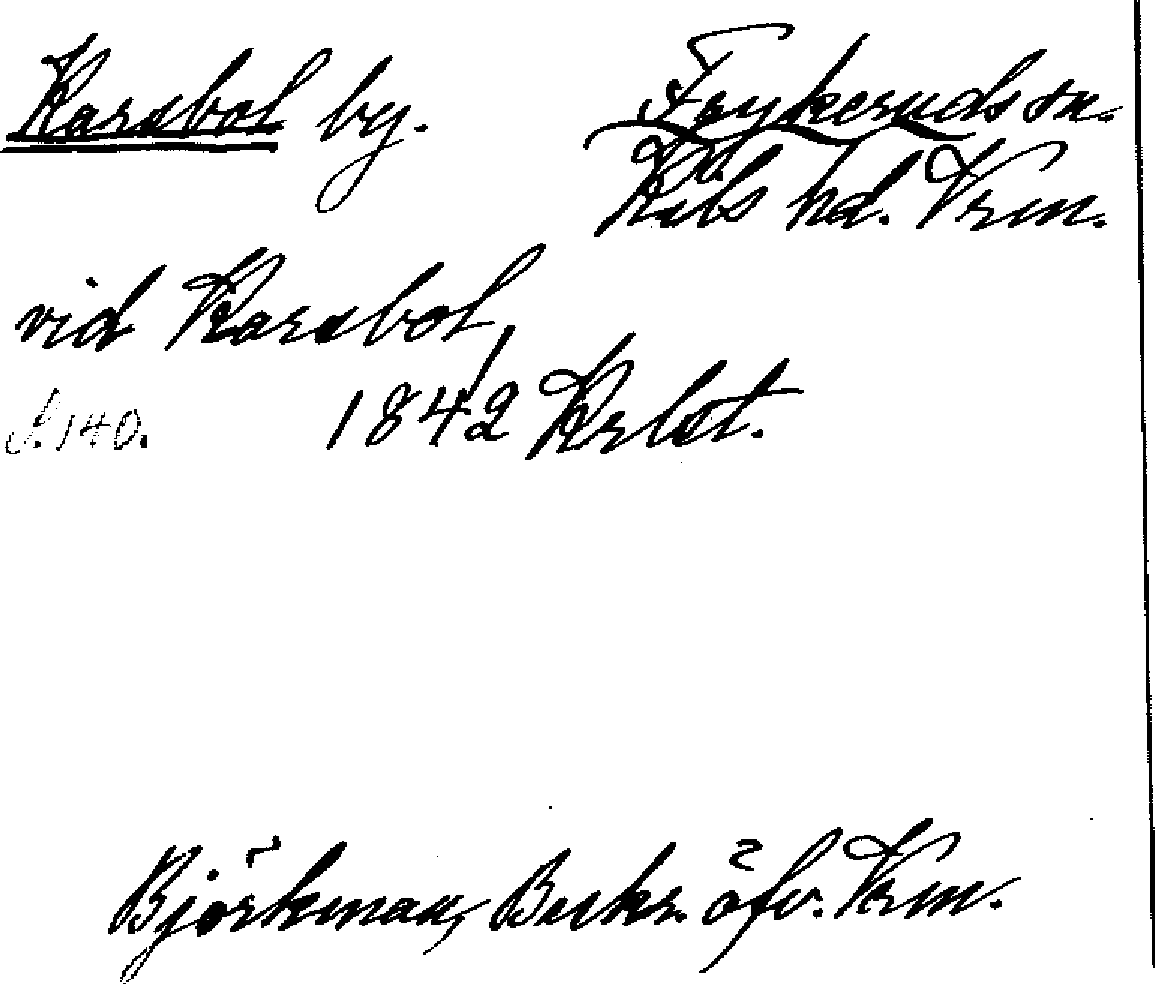 Karsbol by. Frykeruds sn.
Kils hd. Vrm.
vid Karsbol,
S. 140. 1842 Krlst.
Björkman, Beskr. öfv. Vrm.